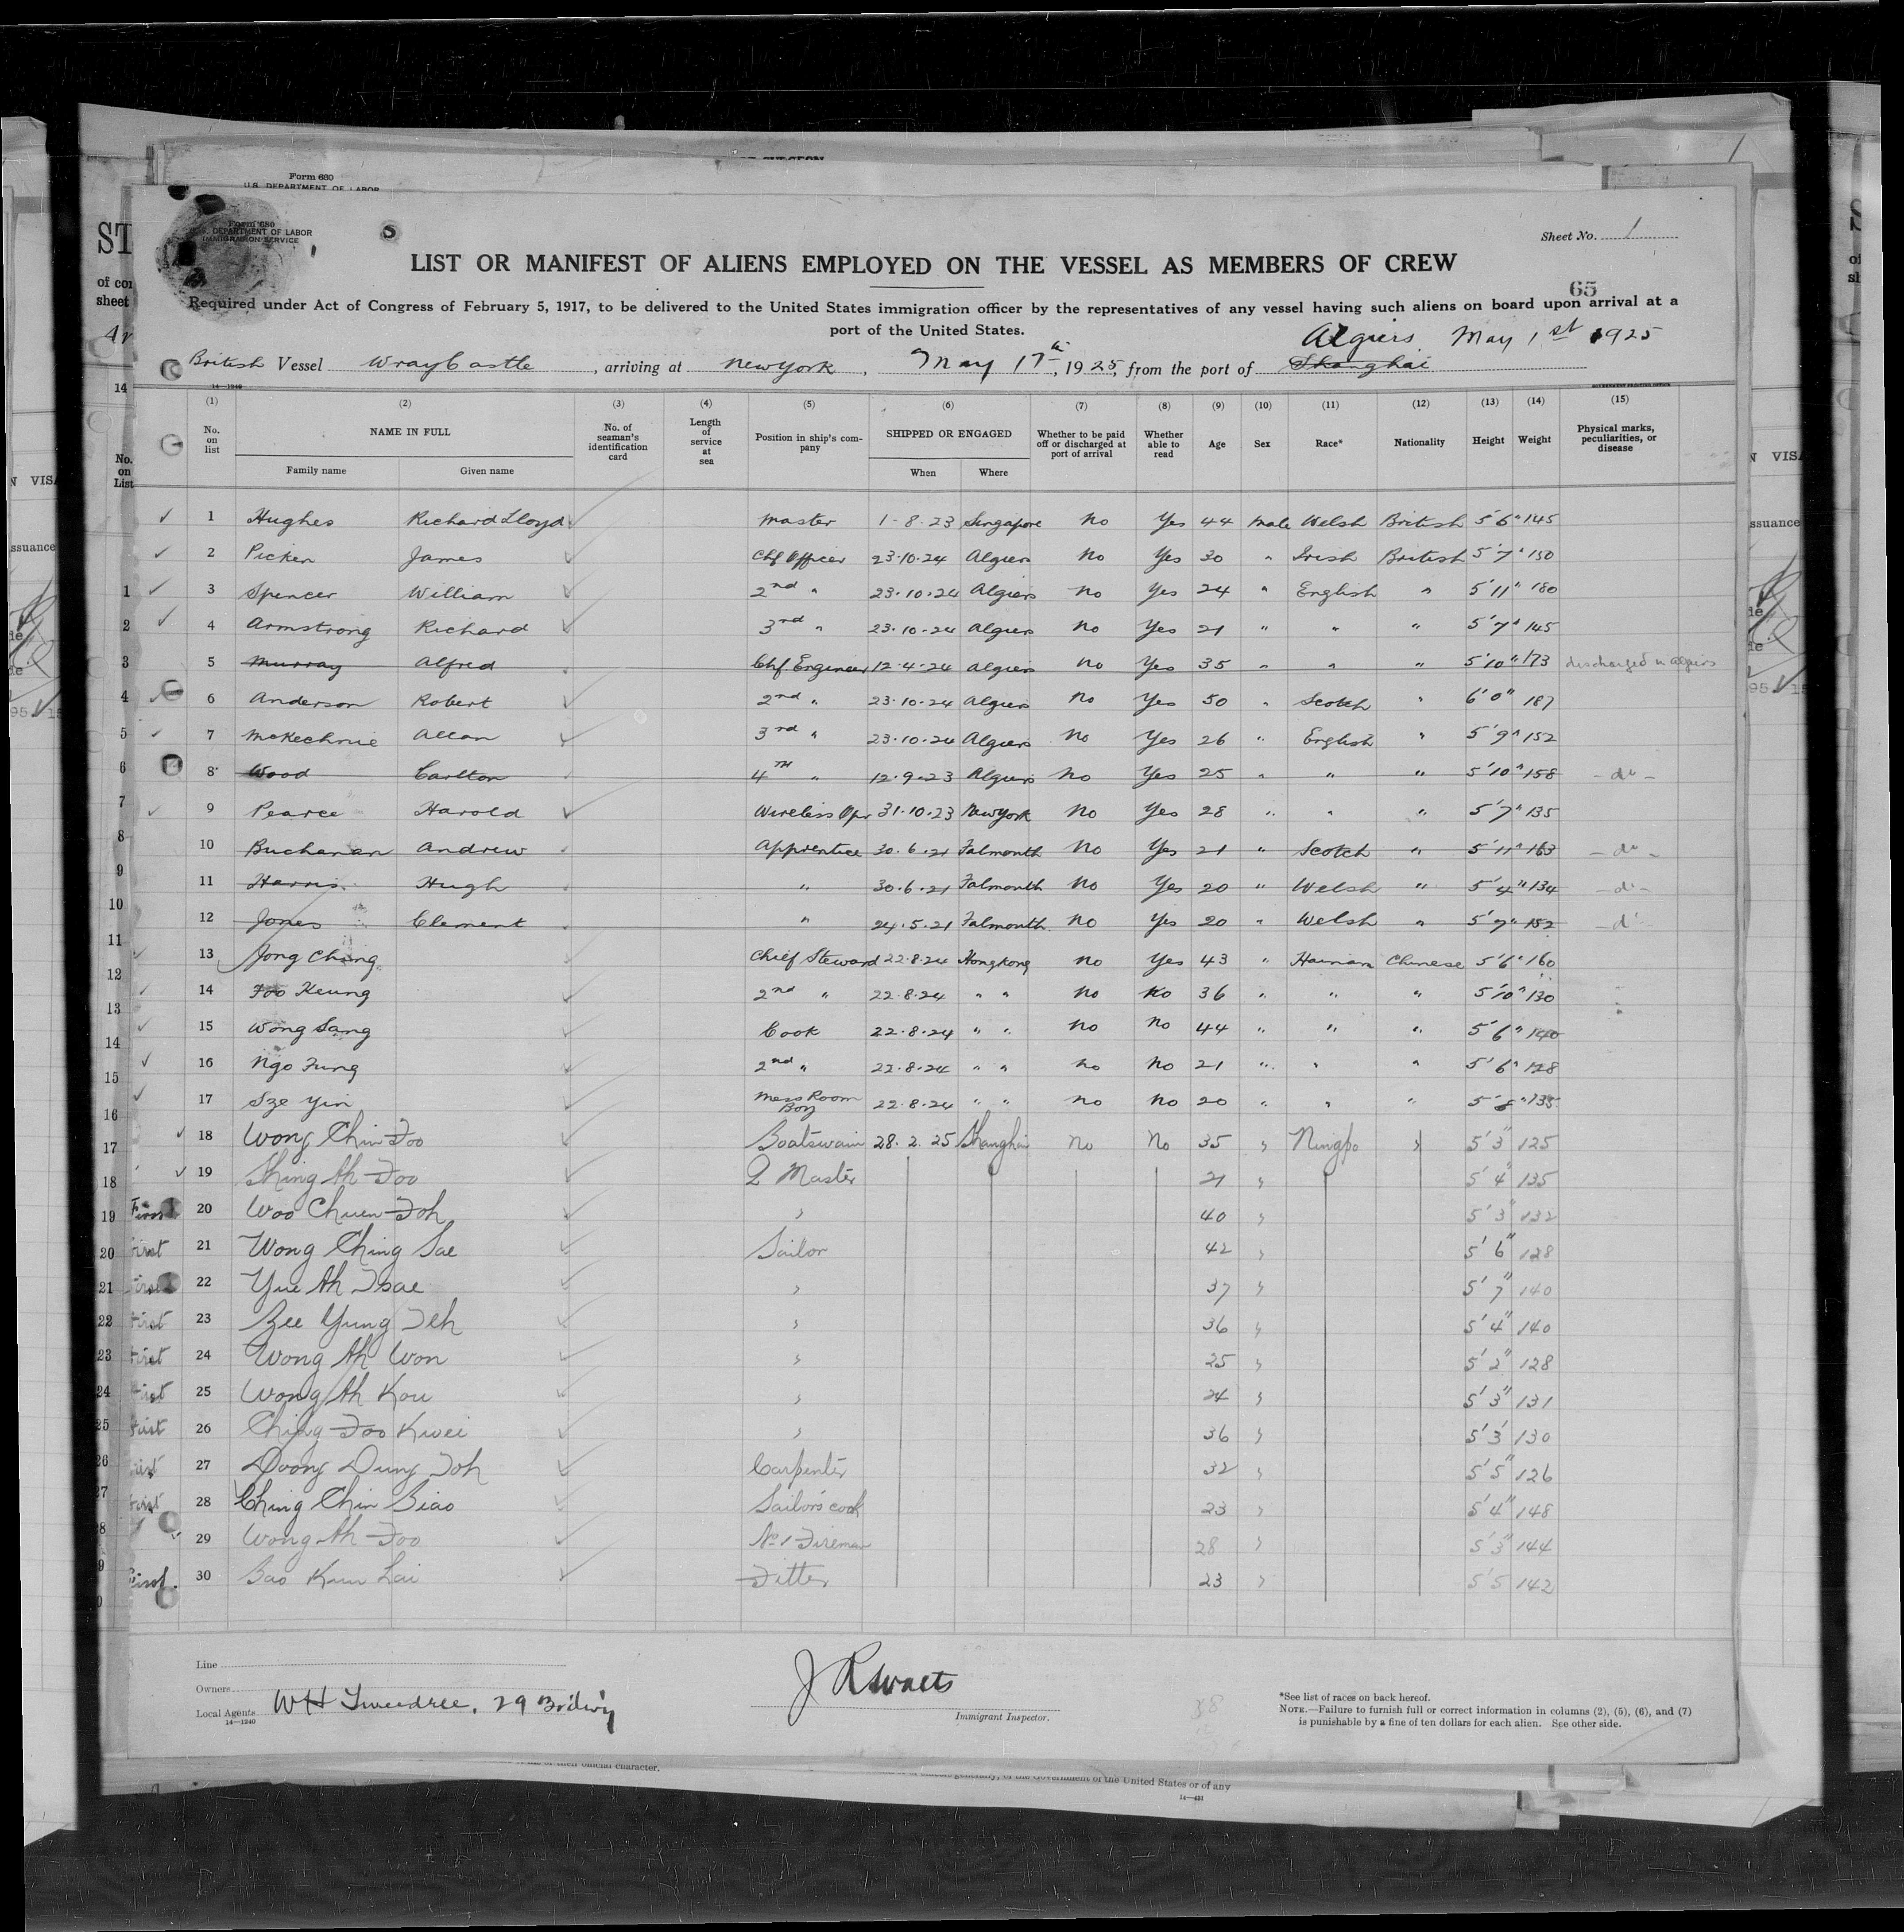 Form 680
U.S. DEPARTMENT OF LABOR
Form 680
DEPARTMENT OF LABOR
IMMIGRATION SERVICE
S
Sheet No. 1
LIST OR MANIFEST OF ALIENS EMPLOYED ON THE VESSEL AS MEMBERS OF CREW
65
Required under Act of Congress of February 5, 1917, to be delivered to the United States immigration officer by the representatives of any vessel having such aliens on board upon arrival at a
port of the United States.
Algiers May 1st 1925
British Vessel Wray Castle, arriving at New York, May 17th, 1925, from the port of Shanghai
14—1240
(1) (2) (3) (4) (5) (6) (7) (8) (9) (10) (11) (12) (13) (14) (15)
No. on list NAME IN FULL No. of seaman's identification card Length of service at sea Position in ship's company SHIPPED OR ENGAGED Whether to be paid off or discharged at port of arrival Whether able to read Age Sex Race* Nationality Height Weight Physical marks, peculiarities, or disease
Family name Given name When Where
1 Hughes Richard Lloyd Master 1-8-23 Singapore No Yes 44 Male Welsh British 5'6" 145
2 Picken James Chf Officer 23-10-24 Algiers No Yes 30 " Irish British 5'7" 150
3 Spencer William 2nd " 23-10-24 Algiers No Yes 24 " English " 5'11" 180
4 Armstrong Richard 3rd " 23-10-24 Algiers No Yes 21 " " " 5'7" 145
5 Murray Alfred Chf Engineer 12-4-24 Algiers No Yes 35 " " " 5'10" 173 discharged in Algiers
6 Anderson Robert 2nd " 23-10-24 Algiers No Yes 50 " Scotch " 6'0" 187
7 McKechnie Allan 3rd " 23-10-24 Algiers No Yes 26 " English " 5'9" 152
8 Wood Carlton 4TH " 12-9-23 Algiers No Yes 25 " " " 5'10" 158 - do -
9 Pearce Harold Wireless Opr 31-10-23 New York No Yes 28 " " " 5'7" 135
10 Buchanan Andrew Apprentice 30-6-21 Falmouth No Yes 21 " Scotch " 5'11" 163 - do -
11 Harris Hugh " 30-6-21 Falmouth No Yes 20 " Welsh " 5'4" 134 - do -
12 Jones Clement " 24-5-21 Falmouth No Yes 20 " Welsh " 5'7" 152 - do -
13 Jong Chong Chief Steward 22-8-24 Hongkong No Yes 43 " Hainam Chinese 5'6" 160
14 Foo Keung 2nd " 22-8-24 " " No No 36 " " " 5'10" 130
15 Wong Sang Cook 22-8-24 " " No No 44 " " " 5'6" 140
16 Ngo Fung 2nd " 22-8-24 " " No No 21 " " " 5'6" 128
17 Sze Yin Mess Room Boy 22-8-24 " " No No 20 " " " 5'8" 135
18 Wong Chin Foo Boatswain 28.2.25 Shanghai No No 35 " Ningpo " 5'3" 125
19 Shing Ah Foo Q Master 21 " 5'4" 135
First 20 Woo Chuen Foh " 40 " 5'3" 132
First 21 Wong Ching Sae Sailor 42 " 5'6" 128
First 22 Yue Ah Tsae " 37 " 5'7" 140
First 23 Zee Yung Teh " 36 " 5'4" 140
First 24 Wong Ah Won " 25 " 5'2" 128
First 25 Wong Ah Kou " 24 " 5'3" 131
First 26 Ching Foo Kwei " 36 " 5'3" 130
First 27 Doong Dung Foh Carpenter 32 " 5'5" 126
First 28 Ching Chin Biao Sailors cook 23 " 5'4" 148
29 Wong Ah Foo No 1 Fireman 28 " 5'3" 144
First 30 Bao Kun Lai Fitter 23 " 5'5 142
Line
Owners
Local Agents W H Tweedie, 29 Brdwy
14—1240
Immigrant Inspector.
*See list of races on back hereof.
NOTE.—Failure to furnish full or correct information in columns (2), (5), (6), and (7)
is punishable by a fine of ten dollars for each alien. See other side.